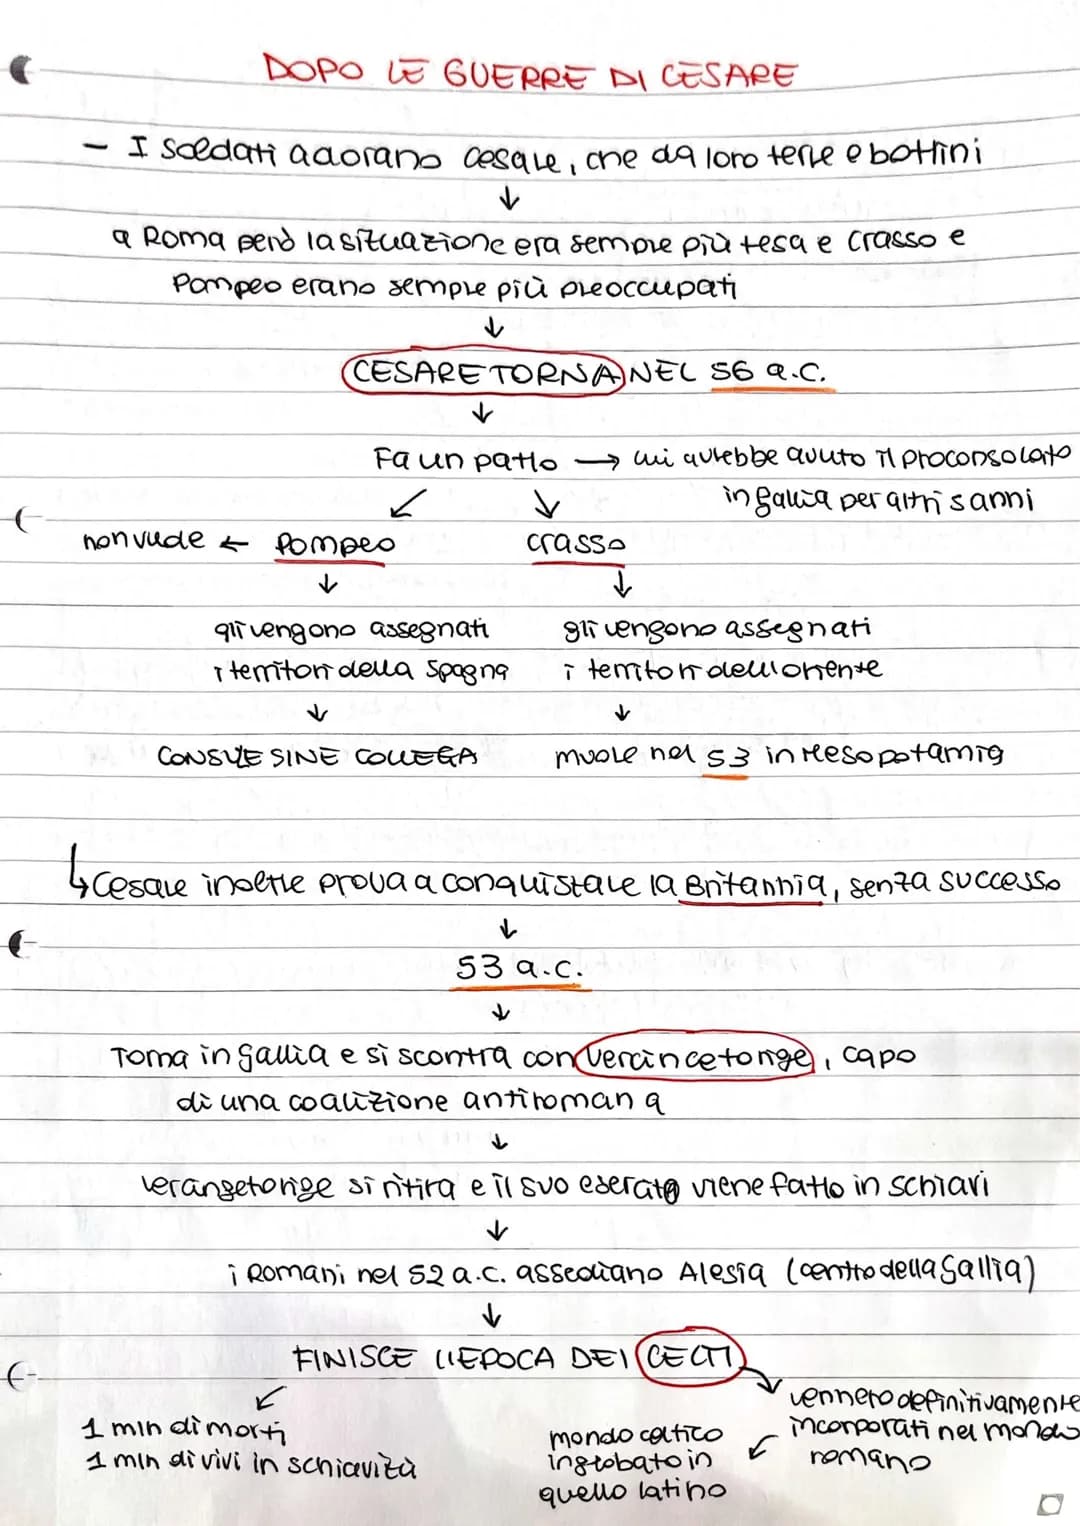 DOPO LE GUERRE DI CESARE
- I soldati adorano Cesare, che dà loro terre e bottini
↓
a Roma però la situazione era sempre più tesa e Crasso e
Pompeo erano sempre più preoccupati
↓
CESARE TORNA NEL 56 a.C.
↓
Fa un patto → lui avrebbe avuto il proconsolato
in Gallia per altri 5 anni
↙ ↓
non vuole ← Pompeo Crasso
↓ ↓
gli vengono assegnati gli vengono assegnati
i territori della Spagna i territori dell'oriente
↓ ↓
CONSULE SINE COLLEGA muore nel 53 in Mesopotamia
↳ Cesare inoltre prova a conquistare la Britannia, senza successo
↓
53 a.C.
↓
Torna in Gallia e si scontra con Vercincetorige, capo
di una coalizione antiromana
↓
Verangetorige si ritira e il suo esercito viene fatto in schiavi
↓
i Romani nel 52 a.C. assediano Alesia (centro della Gallia)
↓
FINISCE l'EPOCA DEI CELTI
↙ ↘
vennero definitivamente
1 mln di morti incorporati nel mondo
mondo celtico ↙ romano
1 mln di vivi in schiavità inglobato in
quello latino